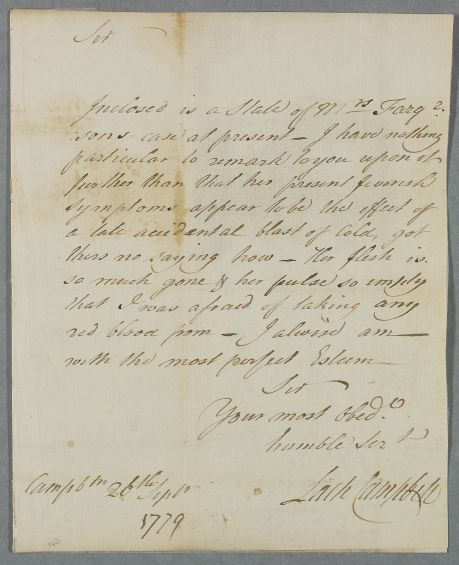 Sir
Inclosed is a State of Mrs Farq
:sons case at present – I have nothing
particular to remark to you upon it
further than that her present feverish
Symptoms appear to be the effect of
a late accidental blast of Cold, got
thers no saying how – Her flesh is
so much gone & her pulse so empty
that I was afraid of taking any
red blood from – I always am
with the most perfect Esteem
Sir
Your most Obedt
humble Servt
Lach Campbell
Campbtn 26th Septr
1779